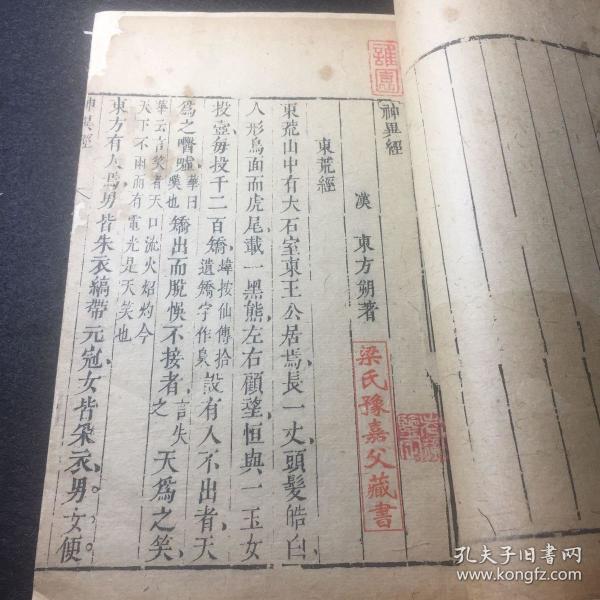 神異經
漢 東方朔著
東荒經
東荒山中有大石室東王公居焉長一丈頭髮皓白
人形鳥面而虎尾載一黑熊左右顧望恒與一玉女
投壺每投千二百矯設有人不出者天
為之噓華曰嘆也矯出而脫悞不接者言失之天為之笑
華云言笑者天口流火炤灼今
天下不雨而有電光是天笑也
東方有人焉男皆朱衣縞帶元冠女皆采衣男女便
神異經
梁氏豫嘉父藏書
孔夫子旧书网
www.kongfz.com